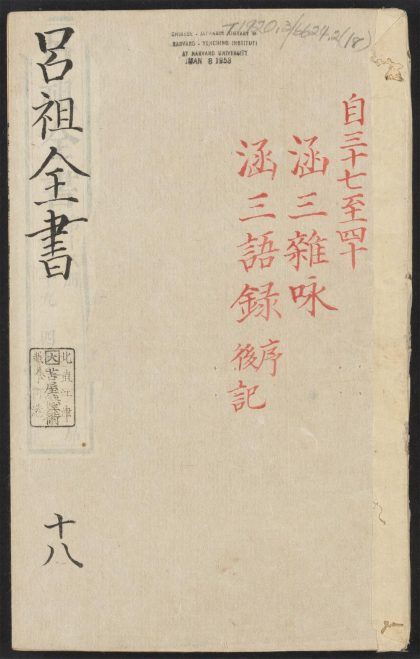 T1920.3/6624.2(18)
CHINESE - JAPANESE LIBRARY OF
HARVARD - YENCHING INSTITUTE
AT HARVARD UNIVERSITY
MAR 8 1953
自三十七至四十
涵三雜咏
涵三語録序
後記
呂祖全書
十八